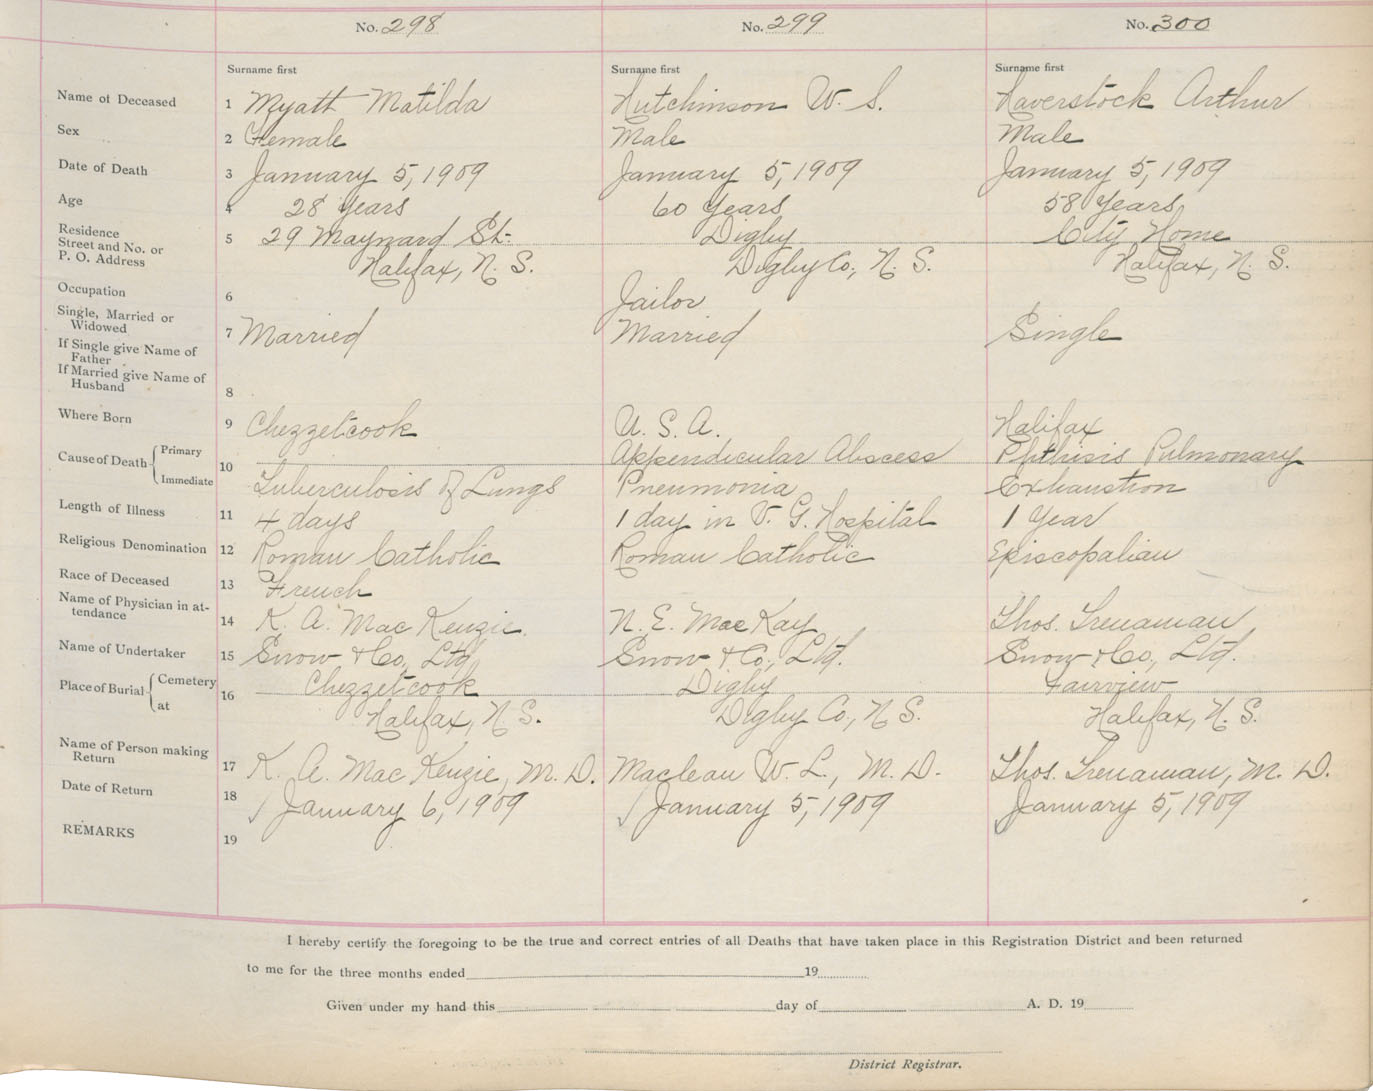 No. 298 No. 299 No. 300
Surname first Surname first Surname first
Name of Deceased 1 Myatt Matilda Hutchinson W. S. Haverstock Arthur
Sex 2 Female Male Male
Date of Death 3 January 5, 1909 January 5, 1909 January 5, 1909
Age 4 28 Years 60 Years 58 Years
Residence
Street and No. or 5 29 Maynard St. Digby City Home
P. O. Address Halifax, N. S. Digby Co., N. S. Halifax, N. S.
Occupation 6 Jailor
Single, Married or
Widowed 7 Married Married Single
If Single give Name of
Father
If Married give Name of
Husband 8
Where Born 9 Chezzetcook U. S. A. Halifax
Cause of Death Primary 10 Appendicular Abscess Phthisis Pulmonary
Immediate Tuberculosis of Lungs Pneumonia Exhaustion
Length of Illness 11 4 days 1 day in V. G. Hospital 1 Year
Religious Denomination 12 Roman Catholic Roman Catholic Episcopalian
Race of Deceased 13 French
Name of Physician in at-
tendance 14 K. A. MacKenzie N. E. MacKay Thos. Trenaman
Name of Undertaker 15 Snow & Co., Ltd. Snow & Co., Ltd. Snow & Co., Ltd.
Place of Burial Cemetery 16 Chezzetcook Digby Fairview
at Halifax, N. S. Digby Co., N. S. Halifax, N. S.
Name of Person making
Return 17 K. A. MacKenzie, M. D. Maclean W. L., M. D. Thos. Trenaman, M. D.
Date of Return 18 January 6, 1909 January 5, 1909 January 5, 1909
REMARKS 19
I hereby certify the foregoing to be the true and correct entries of all Deaths that have taken place in this Registration District and been returned
to me for the three months ended 19
Given under my hand this day of A. D. 19
District Registrar.